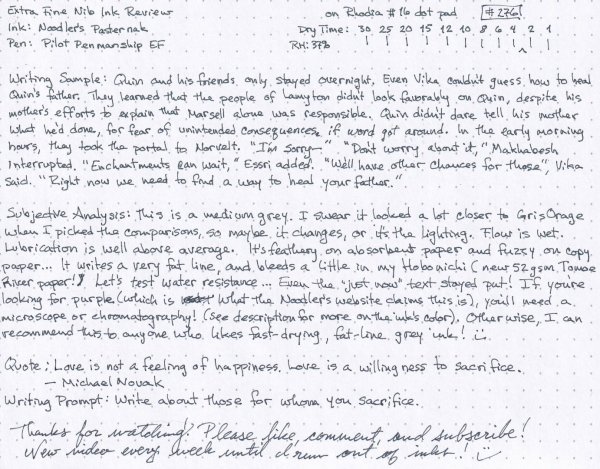 Extra Fine Nib Ink Review on Rhodia #16 dot pad #276
Ink: Noodler's Pasternak Dry Time: 30 25 20 15 12 10 8 6 4 2 1
Pen: Pilot Penmanship EF RH: 37%
Writing Sample: Quin and his friends only stayed overnight. Even Vika couldn't guess how to heal
Quin's father. They learned that the people of Lamyton didn't look favorably on Quin, despite his
mother's efforts to explain that Marsell alone was responsible. Quin didn't dare tell his mother
what he'd done, for fear of unintended consequences if word got around. In the early morning
hours, they took the portal to Norvelt. "I'm sorry—" "Don't worry about it," Makhabesh
interrupted. "Enchantments can wait," Essri added. "We'll have other chances for those", Vika
said. "Right now we need to find a way to heal your father."
Subjective Analysis: This is a medium grey. I swear it looked a lot closer to Gris Orage
when I picked the comparisons, so maybe it changes, or it's the lighting. Flow is wet.
Lubrication is well above average. It's feathery on absorbent paper and fuzzy on copy
paper... It writes a very fat line, and bleeds a little in my Hobonichi (new 52gsm Tomoe
River paper!) Let's test water resistance... Even the "just now" text stayed put! If you're
looking for purple (which is what the Noodler's website claims this is), you'll need a
microscope or chromatography! (see description for more on the ink's color). Otherwise, I can
recommend this to anyone who likes fast-drying, fat-line grey ink!
Quote: Love is not a feeling of happiness. Love is a willingness to sacrifice.
— Michael Novak
Writing Prompt: Write about those for whom you sacrifice.
Thanks for watching! Please like, comment, and subscribe!
New video every week until I run out of inks!